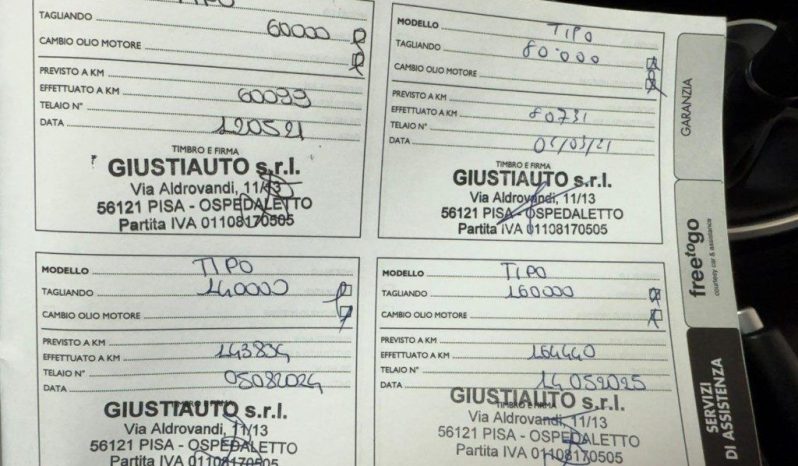 TIPO
TAGLIANDO 60000
CAMBIO OLIO MOTORE
PREVISTO A KM
EFFETTUATO A KM 60099
TELAIO N°
DATA 120521
TIMBRO E FIRMA
GIUSTIAUTO s.r.l.
Via Aldrovandi, 11/13
56121 PISA - OSPEDALETTO
Partita IVA 01108170505
MODELLO TIPO
TAGLIANDO 80.000
CAMBIO OLIO MOTORE
PREVISTO A KM
EFFETTUATO A KM 80731
TELAIO N°
DATA
TIMBRO E FIRMA
GIUSTIAUTO s.r.l.
Via Aldrovandi, 11/13
56121 PISA - OSPEDALETTO
Partita IVA 01108170505
MODELLO TIPO
TAGLIANDO 140000
CAMBIO OLIO MOTORE
PREVISTO A KM
EFFETTUATO A KM 143834
TELAIO N°
DATA 05082024
TIMBRO E FIRMA
GIUSTIAUTO s.r.l.
Via Aldrovandi, 11/13
56121 PISA - OSPEDALETTO
Partita IVA 01108170505
MODELLO TIPO
TAGLIANDO 160000
CAMBIO OLIO MOTORE
PREVISTO A KM
EFFETTUATO A KM 164440
TELAIO N°
DATA 14052025
TIMBRO E FIRMA
GIUSTIAUTO s.r.l.
Via Aldrovandi, 11/13
56121 PISA - OSPEDALETTO
Partita IVA 01108170505
GARANZIA
freetogo
courtesy car & assistance
SERVIZI
DI ASSISTENZA